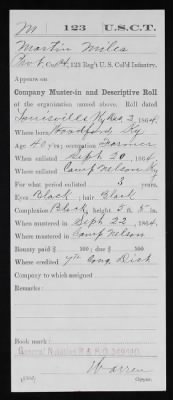 M | 123 | U.S.C.T.
Martin Miles
Co. , 123 Reg't U.S. Col'd Infantry.
Appears on
Company Muster-in and Descriptive Roll
of the organization named above. Roll dated
Louisville Ky 2, 1864.
Where born Woodford Ky
Age 40 y'rs; occupation Farmer
When enlisted Sept 20, 1864.
Where enlisted Camp Nelson Ky
For what period enlisted 3 years.
Eyes Black; hair Black
Complexion Black; height 5 ft. 5 in.
When mustered in Sept 22, 1864.
Where mustered in Camp Nelson
Bounty paid $ 100; due $ 100
Where credited 7th Cong. Dist
Company to which assigned
Remarks:
Book mark:
Warren
Copyist.